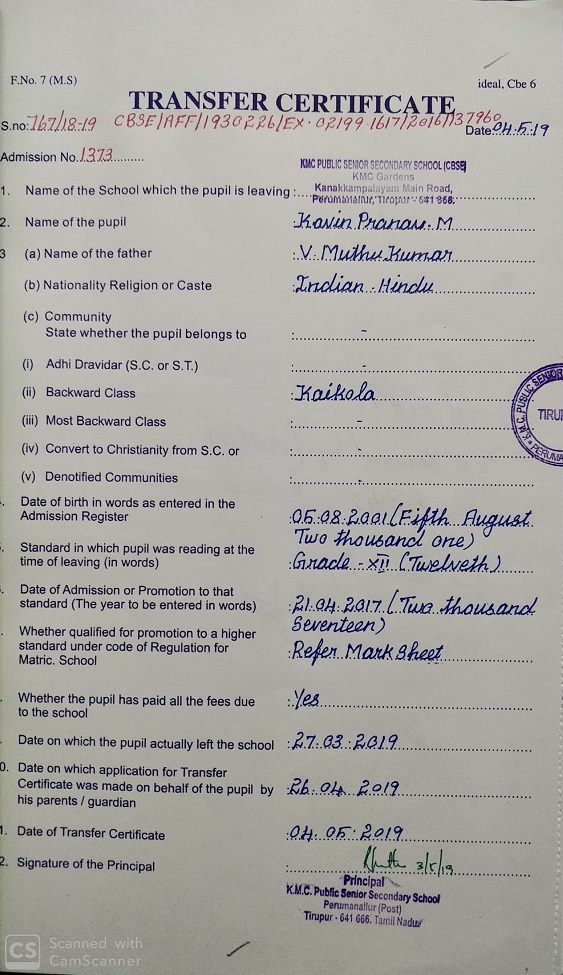 F.No. 7 (M.S)
ideal, Cbe 6
TRANSFER CERTIFICATE
S.no: 767/18-19 CBSE/AFF/1930226/EX-02199 1617/2016/137960 Date: 04.5.19
Admission No. 1373
KMC PUBLIC SENIOR SECONDARY SCHOOL (CBSE)
KMC Gardens
1. Name of the School which the pupil is leaving : Kanakkampalayam Main Road,
Perumanallur, Tirupur - 641 666.
2. Name of the pupil : Kavin Pranav. M
3 (a) Name of the father : V. Muthu Kumar
(b) Nationality Religion or Caste : Indian - Hindu
(c) Community
State whether the pupil belongs to : -
(i) Adhi Dravidar (S.C. or S.T.) : -
(ii) Backward Class : Kaikola
(iii) Most Backward Class : -
(iv) Convert to Christianity from S.C. or : -
(v) Denotified Communities : -
. Date of birth in words as entered in the
Admission Register : 05.08.2001 (Fifth August
Two thousand one)
. Standard in which pupil was reading at the
time of leaving (in words) : Grade - XII (Twelveth)
. Date of Admission or Promotion to that
standard (The year to be entered in words) : 21.04.2017 (Two thousand
Seventeen)
. Whether qualified for promotion to a higher
standard under code of Regulation for : Refer Mark Sheet
Matric. School
. Whether the pupil has paid all the fees due : Yes
to the school
. Date on which the pupil actually left the school : 27.03.2019
0. Date on which application for Transfer
Certificate was made on behalf of the pupil by : 26.04.2019
his parents / guardian
1. Date of Transfer Certificate : 04.05.2019
2. Signature of the Principal : 3/5/19
Principal
K.M.C. Public Senior Secondary School
Perumanallur (Post)
Tirupur - 641 666. Tamil Nadu
K.M.C. PUBLIC SENIOR
TIRU
PERUMA
CS Scanned with
CamScanner